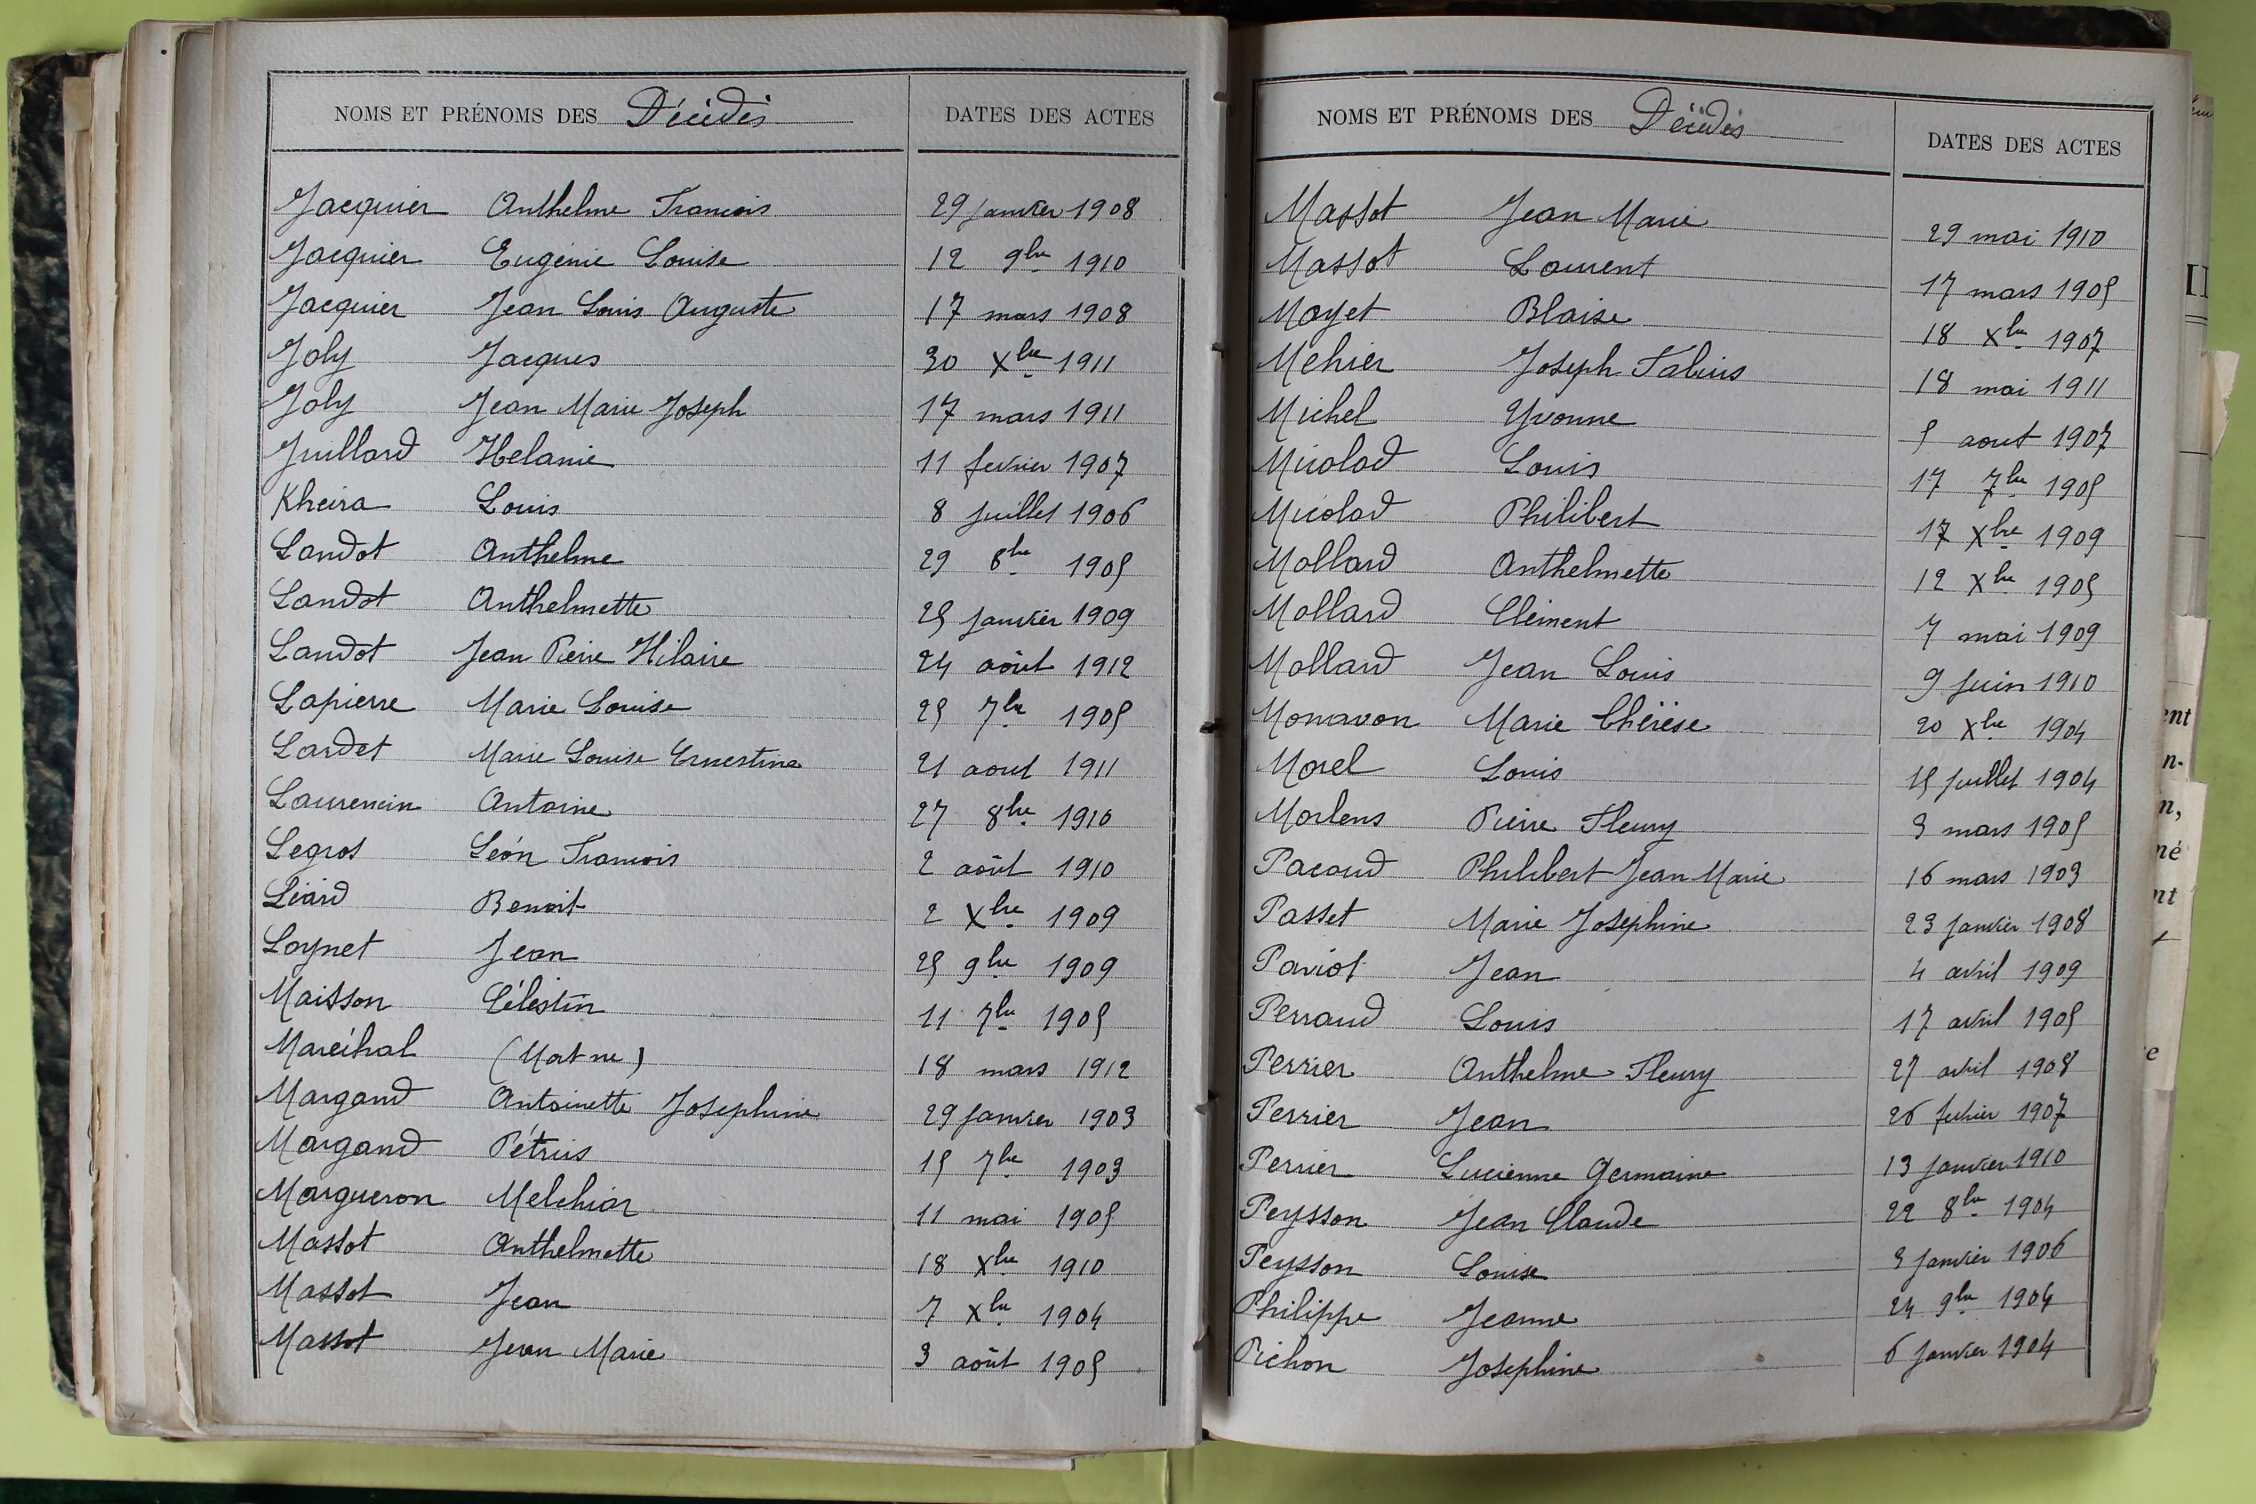 NOMS ET PRÉNOMS DES Décédés DATES DES ACTES
Jacquier Anthelme Francois 29 janvier 1908
Jacquier Eugénie Louise 12 9bre 1910
Jacquier Jean Louis Auguste 17 mars 1908
Joly Jacques 30 Xbre 1911
Joly Jean Marie Joseph 17 mars 1911
Juillard Hélanie 11 fevrier 1907
Kheira Louis 8 juillet 1906
Landot Anthelme 29 8bre 1905
Landot Anthelmette 25 janvier 1909
Landot Jean Pierre Hilaire 24 août 1912
Lapierre Marie Louise 25 7bre 1905
Lardet Marie Louise Ernestine 21 aout 1911
Laurencin Antoine 27 8bre 1910
Legros Léon Francois 2 août 1910
Léard Benoit 2 Xbre 1909
Loynet Jean 25 9bre 1909
Maisson Célestin 11 7bre 1905
Maréchal (Mort né) 18 mars 1912
Margand Antoinette Josephine 29 janvier 1903
Margand Pétrus 15 7bre 1903
Margueron Melchior 11 mai 1905
Massot Anthelmette 18 Xbre 1910
Massot Jean 7 Xbre 1904
Massot Jean Marie 3 août 1905
NOMS ET PRÉNOMS DES Décédés DATES DES ACTES
Massot Jean Marie 29 mai 1910
Massot Laurent 17 mars 1905
Mayet Blaise 18 Xbre 1907
Mehier Joseph Fabius 18 mai 1911
Michel Yvonne 5 aout 1907
Micolod Louis 17 7bre 1905
Micolod Philibert 17 Xbre 1909
Mollard Anthelmette 12 Xbre 1905
Mollard Clément 7 mai 1909
Mollard Jean Louis 9 juin 1910
Monavon Marie Thérèse 20 Xbre 1904
Morel Louis 15 juillet 1904
Morlens Pierre Fleury 3 mars 1905
Pacoud Philibert Jean Marie 16 mars 1903
Passet Marie Joséphine 23 janvier 1908
Paviot Jean 4 avril 1909
Perraud Louis 17 avril 1905
Perrier Anthelme Fleury 27 avril 1908
Perrier Jean 26 fevrier 1907
Perrier Lucienne Germaine 13 janvier 1910
Peysson Jean Claude 22 8bre 1904
Peysson Louise 3 janvier 1906
Philippe Jeanne 24 9bre 1904
Pichon Josephine 6 janvier 1904